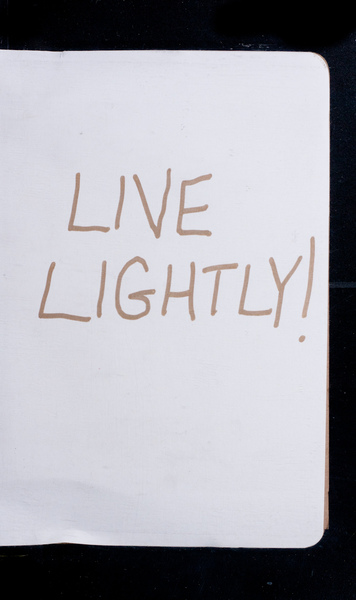 LIVE
LIGHTLY!